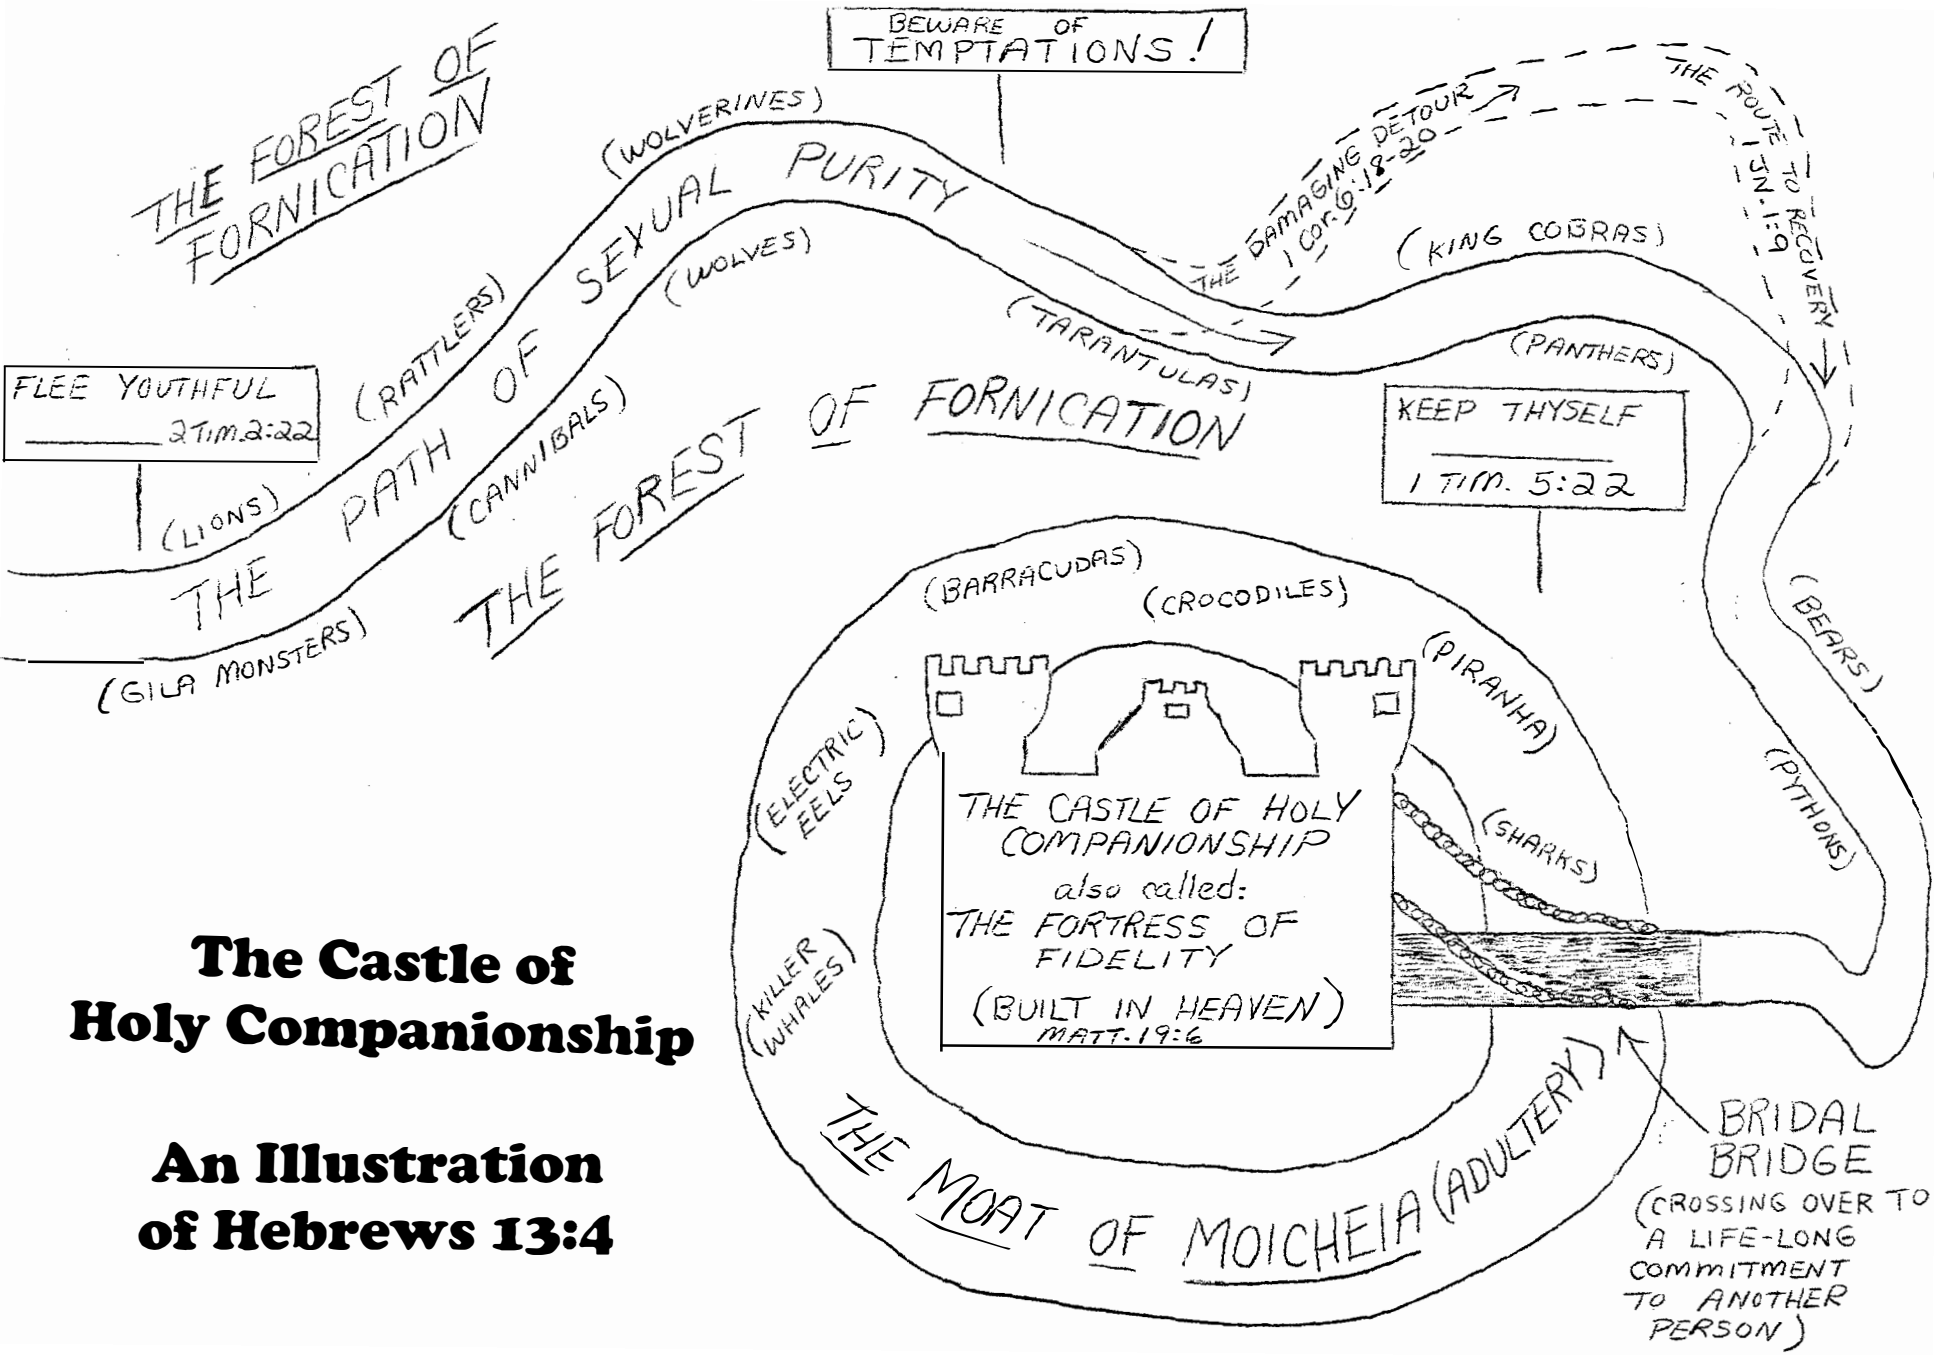 BEWARE OF
TEMPTATIONS!
THE FOREST OF
FORNICATION
THE DAMAGING DETOUR
1 COR. 6:18-20
THE ROUTE TO RECOVERY
1 JN. 1:9
(WOLVERINES)
THE PATH OF SEXUAL PURITY
(WOLVES)
(KING COBRAS)
(RATTLERS)
(TARANTULAS)
(PANTHERS)
FLEE YOUTHFUL
__________ 2 TIM. 2:22
(CANNIBALS)
THE FOREST OF FORNICATION
KEEP THYSELF
__________
1 TIM. 5:22
(LIONS)
(GILA MONSTERS)
(BEARS)
(PYTHONS)
(BARRACUDAS)
(CROCODILES)
(PIRANHA)
(ELECTRIC
EELS)
(SHARKS)
(KILLER
WHALES)
THE CASTLE OF HOLY
COMPANIONSHIP
also called:
THE FORTRESS OF
FIDELITY
(BUILT IN HEAVEN)
MATT. 19:6
THE MOAT OF MOICHEIA (ADULTERY)
BRIDAL
BRIDGE
(CROSSING OVER TO
A LIFE-LONG
COMMITMENT
TO ANOTHER
PERSON)
The Castle of
Holy Companionship
An Illustration
of Hebrews 13:4